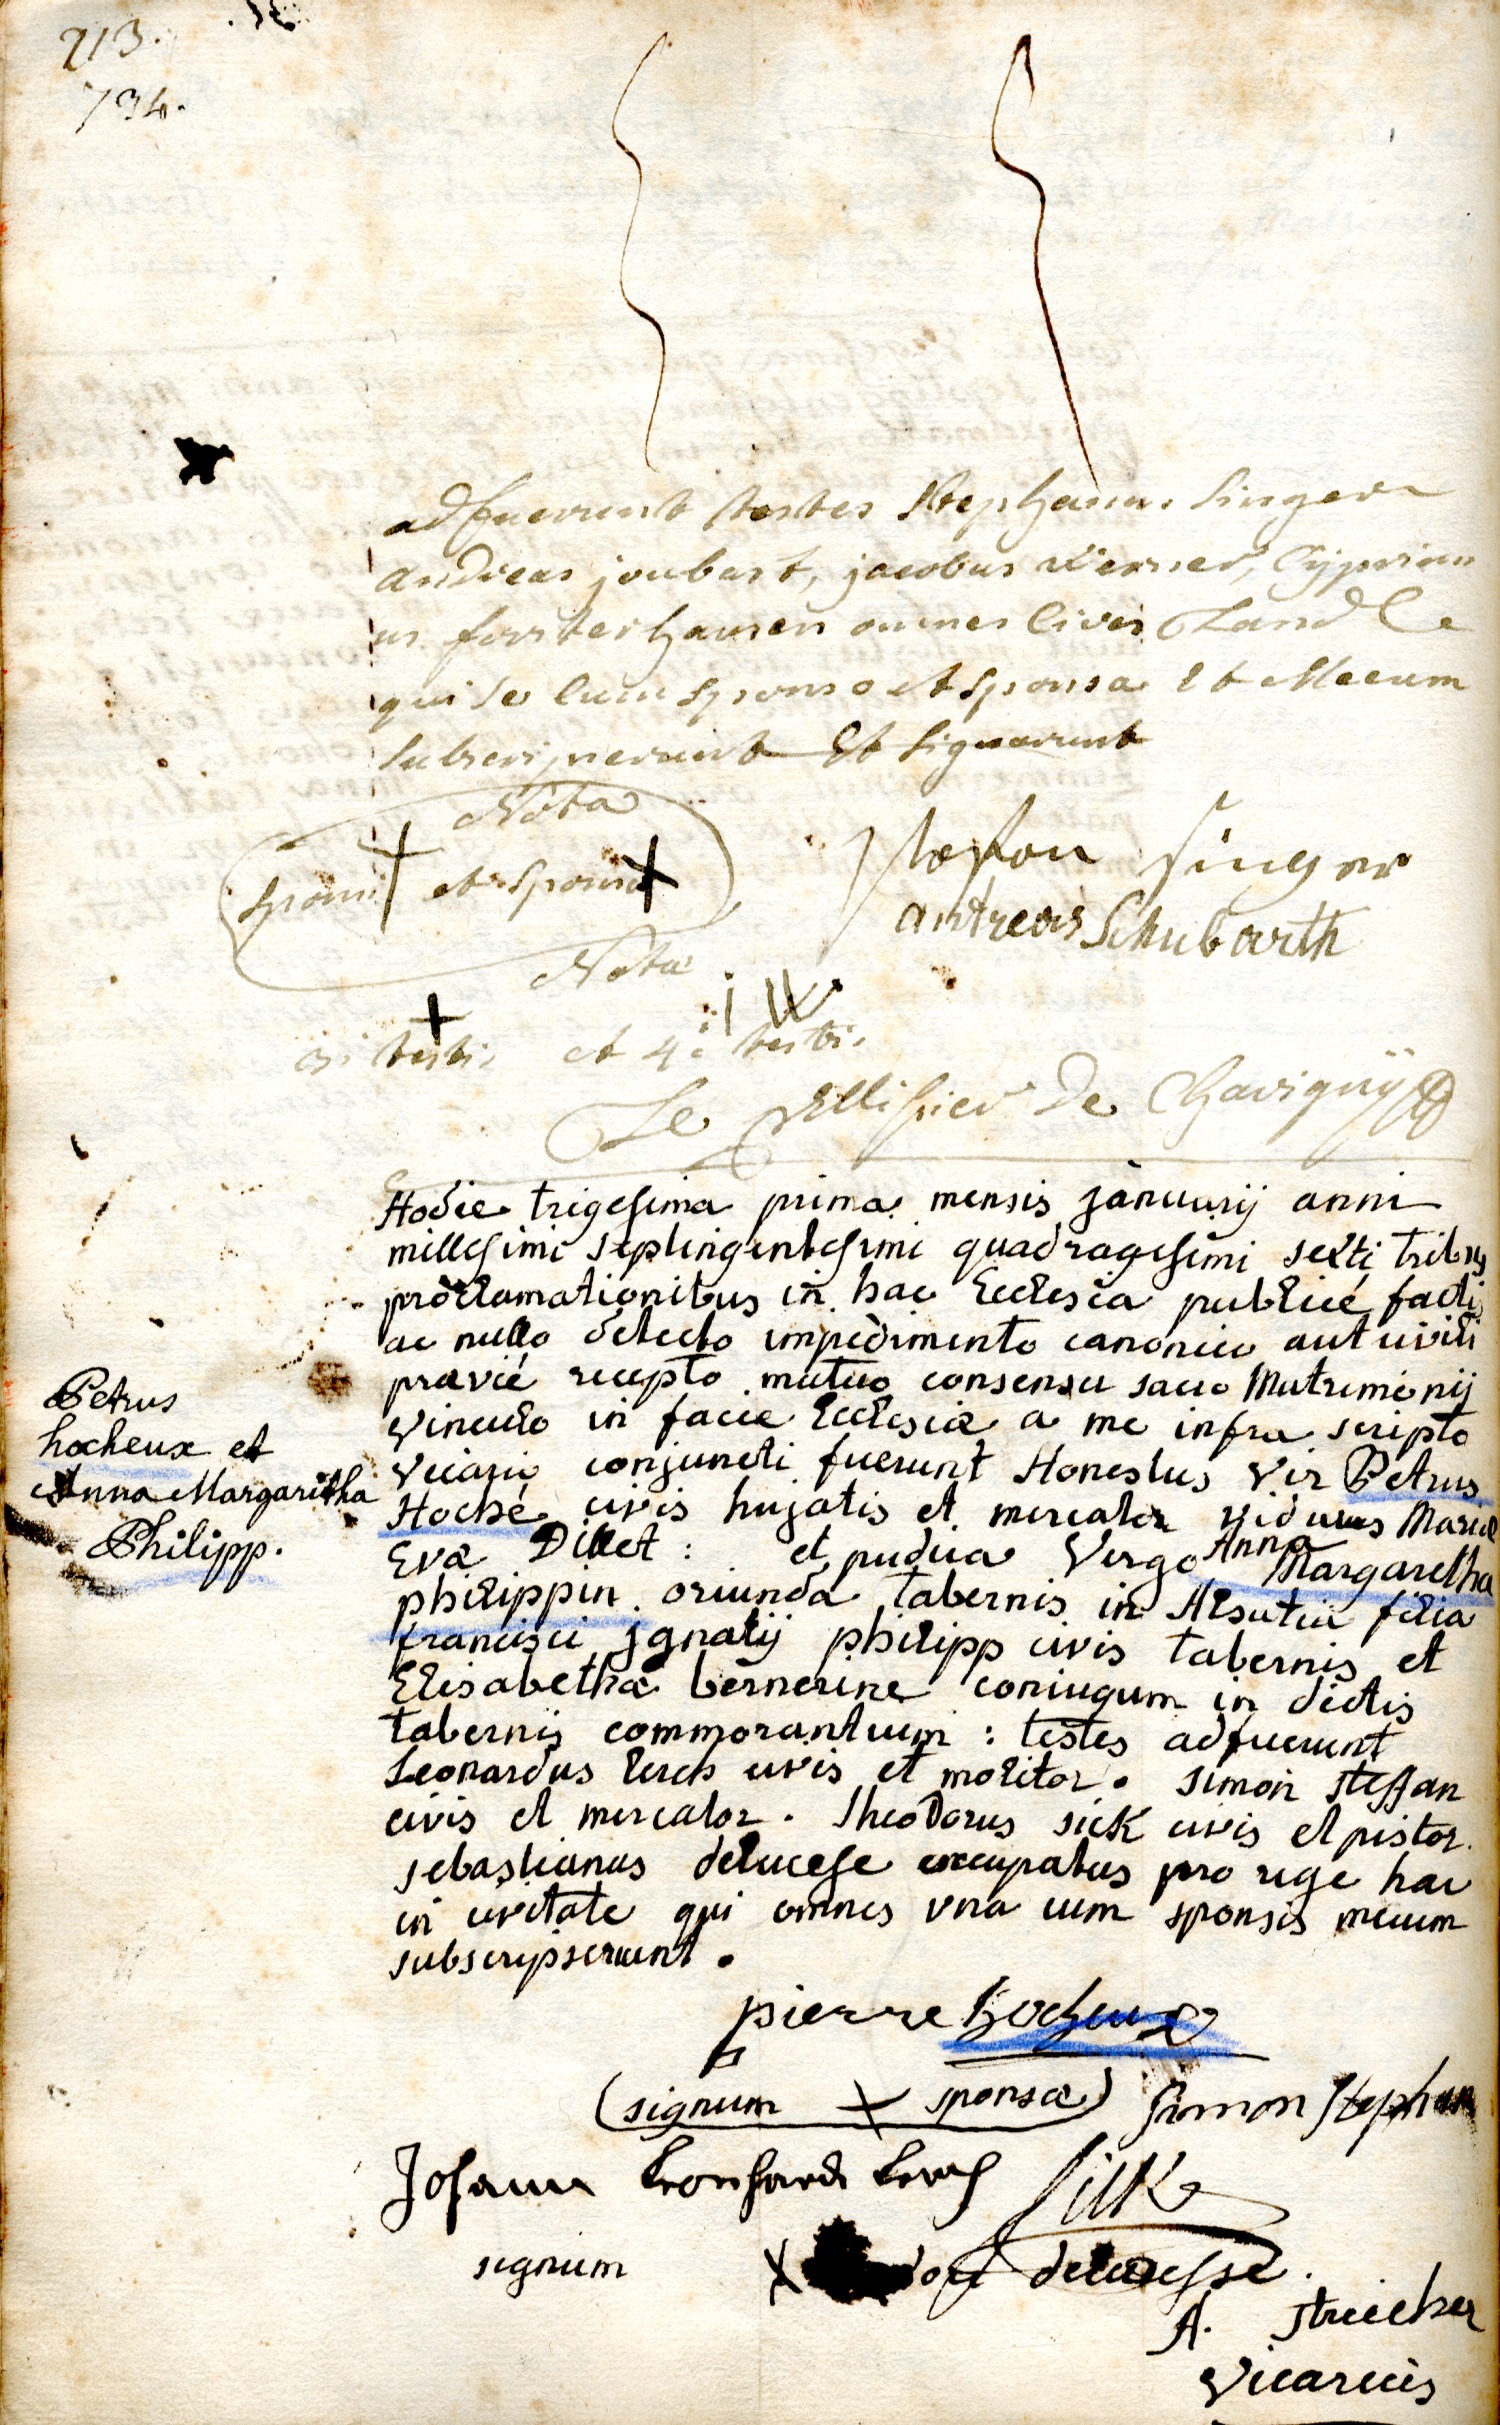 213.
734.
adfuerunt testes Stephanus Singer
andreas joubart, jacobus Werner, Cyprian
us forsterhausen omnes Cives Land Ce
qui se cum sponso et sponsa Et Mecum
subscripserunt Et signarunt
Nota
sponsi et sponsa
Stefan Singer
antreas Schubarth
Nota
3i testis et 4i testis
Le Pellissier De Chavigny
Hodie trigesima prima mensis januarij anni
millesimi septingentesimi quadragesimi sexti tribus
proclamationibus in hac Ecclesia publicé factis
ac nullo detecto impedimento canonico aut civili
praevié recepto mutuo consensu sacro Matrimonij
vinculo in facie Ecclesiæ a me infra scripto
vicario conjuncti fuerunt Honestus Vir Petrus
Hoché civis hujatis et mercator viduus Mariæ
Petrus
hocheux et
Anna Margaritha
Philipp.
Eva Dillet : et pudica Virgo Anna Margaretha
philippin oriunda tabernis in Alsatia filia
francisci jgnatij philipp civis tabernis et
Elisabetha bernerine coniugum in dictis
tabernis commorantium : testes adfuerunt
Leonardus Lerch civis et molitor. simon steffan
civis et mercator. Theodorus sick civis et pistor.
sebastianus delucese occupatus pro rege hac
in civitate qui omnes vna cum sponsis mecum
subscripserunt.
pierre hocheux
(signum + sponsæ) Simon Stephan
Johann Leonhard Lerch Sick
signum x delucesse.
A. Streicher
Vicarius